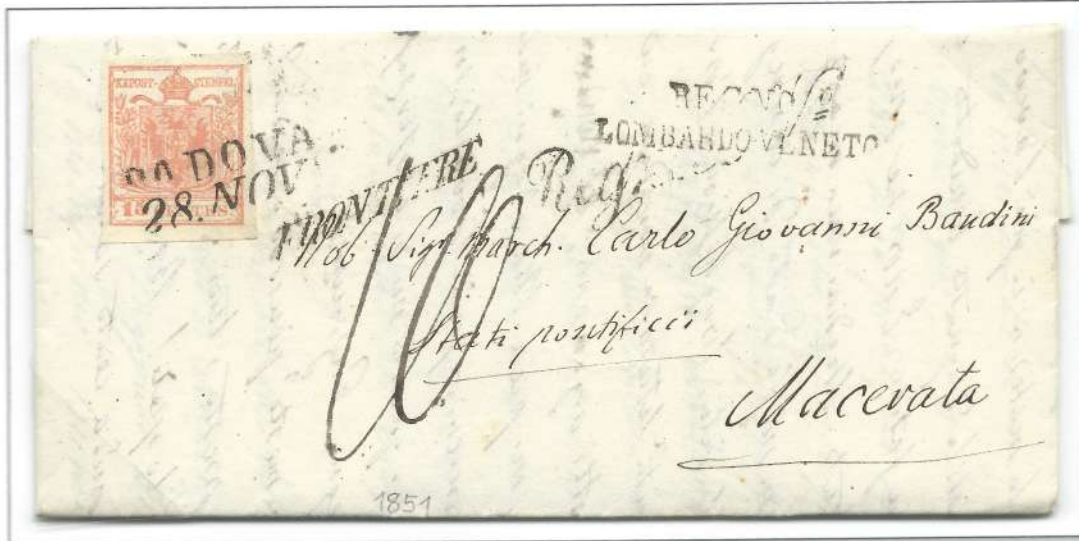 KKPOST-STEMPEL
PADOVA
28. NOV.
REGNO
LOMBARDO VENETO
FRONTIERE
Nob. Sigr. March. Carlo Giovanni Baudini
Stati pontificii
Macerata
1851